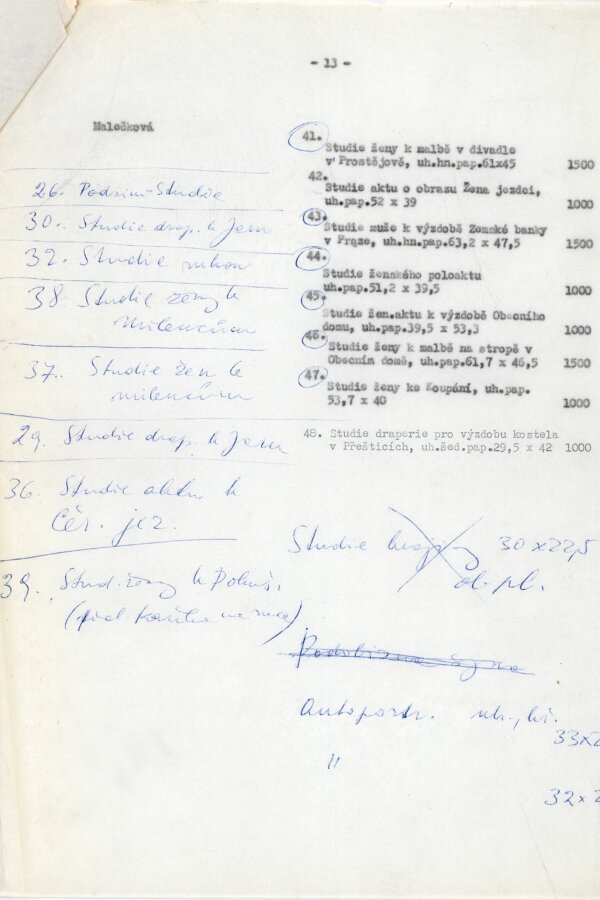 - 13 -
Malečková
26. Podzim-Studie
30. Studie drap. k Jaru
32. Studie rukou
38. Studie ženy k
Milencům
37. Studie žen k
milencům
29. Studie drap. k Jaru
36. Studie aktu k
Čer. jez.
39. Stud. ženy k
41.
Studie ženy k malbě v divadle
v Prostějově, uh.hn.pap.61x45 1500
42.
Studie aktu o obrazu Žena jezdci,
uh.pap.52 x 39 1000
43.
Studie muže k výzdobě Zemské banky
v Praze, uh.hn.pap.63,2 x 47,5 1500
44.
Studie ženského poloaktu
uh.pap.51,2 x 39,5 1000
45.
Studie žen.aktu k výzdobě Obecního
domu, uh.pap.39,5 x 53,3 1000
46.
Studie ženy k malbě na stropě v
Obecním domě, uh.pap.61,7 x 46,5 1500
47.
Studie ženy ke Koupání, uh.pap.
53,7 x 40 1000
48. Studie draperie pro výzdobu kostela
v Přešticích, uh.šed.pap.29,5 x 42 1000
Studie krajiny 30 x 22,5
ol. pl.
Autoportr. uh., kř.
33x2
"
32x2